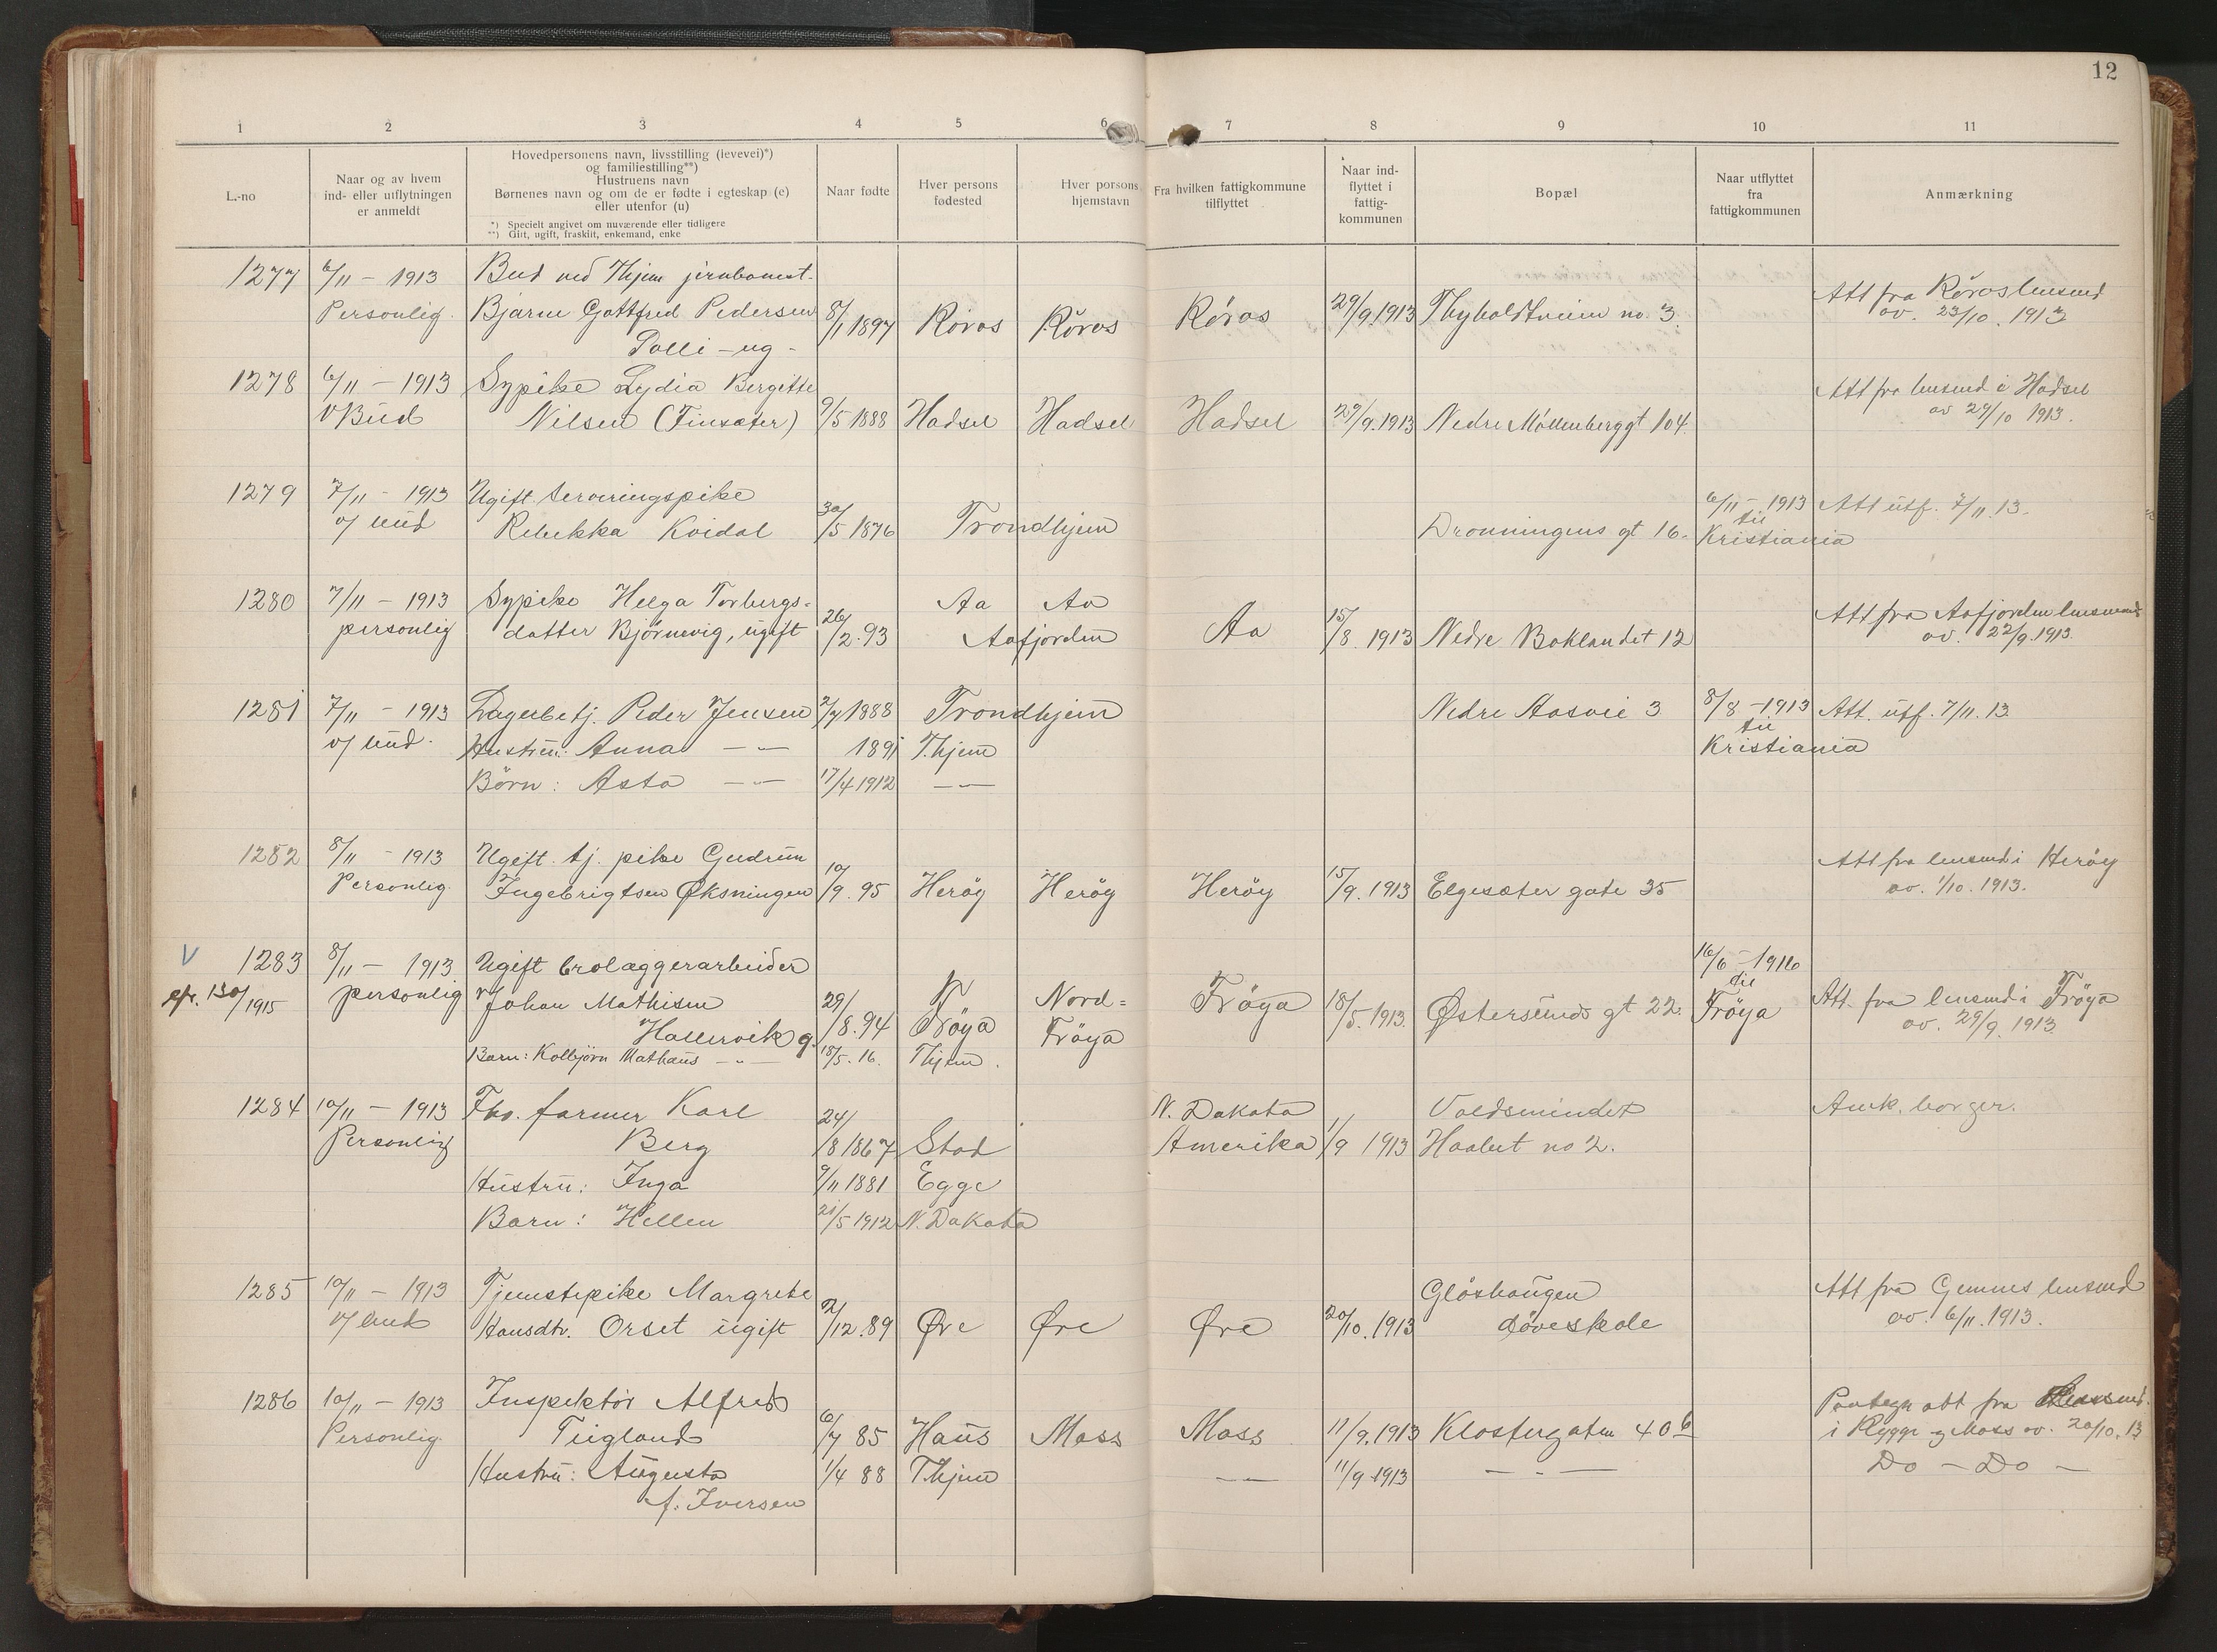 12
1 2 3 4 5 6 7 8 9 10 11
L.-no
Naar og av hvem
ind- eller utflytningen
er anmeldt
Hovedpersonens navn, livsstilling (levevei)*)
og familiestilling**)
Hustruens navn
Børnenes navn og om de er fødte i egteskap (e)
eller utenfor (u)
*) Specielt angivet om nuværende eller tidligere
**) Gift, ugift, fraskilt, enkemand, enke
Naar fødte
Hver persons
fødested
Hver persons
hjemstavn
Fra hvilken fattigkommune
tilflyttet
Naar ind-
flyttet i
fattig-
kommunen
Bopæl
Naar utflyttet
fra
fattigkommunen
Anmærkning
1277 6/11 - 1913 Bud ved Thjem jernbanest.
Personlig. Bjarne Gottfred Pedersen 8/1 1897 Röros Röros Röros 29/9.1913 Thyholdtveien no. 3. Att fra Röros lensmd
av. 23/10. 1913
Tolli - ug -
1278 6/11 - 1913 Sypike Lydia Bergitte Att fra lensmd i Hadsel
v Bud Nilsen (Finsæter) 9/5 1888 Hadsel Hadsel Hadsel 29/9.1913 Nedre Möllenberggt 104. av 29/10 1913.
1279 7/11 - 1913 Ugift serveringspike 6/11 - 1913 Att utf. 7/11.13.
v/ bud Rebekka Kvidal 30/5 1876 Trondhjem Dronningens gt 16. til
Kristiania
1280 7/11 - 1913 Sypike Helga Torbergs- Aa Aa Att fra Aafjorden lensmand
personlig datter Björnevig, ugift 26/2.93 Aafjorden Aa 15/8. 1913 Nedre Baklandet 12 av. 22/9.1913.
1281 7/11 - 1913 Lagerbetj. Peder Jensen 2/7 1888 Trondhjem Nedre Aasvei 3 8/8 - 1913 Att. utf. 7/11.13.
v/ bud. Hustru: Anna — " — 1891 Thjem til
Kristiania
Börn: Asta — " — 17/4 1912 — " —
1282 8/11 - 1913 Ugift tj. pike Gudrun Att fra lensmd i Heröy
Personlig. Ingebrigtsen Øksningen 10/9. 95 Heröy Heröy Heröy 15/9. 1913 Elgesæter gate 35 av. 1/10. 1913.
V 1283 8/11 - 1913 Ugift brolæggerarbeider 16/6 - 1916
cfr. 130/1915 personlig Johan Mathisen 29/8.94 N Fröya Nord= Fröya Fröya 18/5. 1913. Østersunds gt 22. til Fröya Att. fra lensmd i Fröya
av. 29/9. 1913
Hallervik g.
Barn: Kolbjörn Mathæus — " — 18/5. 16. Thjem.
1284 10/11 - 1913 Fhv. farmer Karl N. Dakota Voldsmindet Amk. borger.
Personlig Berg 24/8 1867 Stod Amerika 1/9 1913 Haabet no 2.
Hustru: Inga 9/11 1881 Egge
Barn: Hellen 21/5 1912 N. Dakota
1285 10/11 - 1913 Tjenestepike Margrete Glöshaugen Att fra Gemnes lensmd
v/ bud Hansdtr. Orset ugift 2/12.89 Øre Øre Øre 20/10. 1913 döveskole av. 6/11. 1913.
1286 10/11 - 1913 Inspektör Alfred
Personlig. Teigland 6/7 85 Haus Moss Moss 11/9.1913 Klostergaten 40 b i Rygge og Moss av. 20/10.13
Hustru: Augusta 1/4 88 Thjem — " — 11/9 1913 — " — Do - Do -
f. Iversen